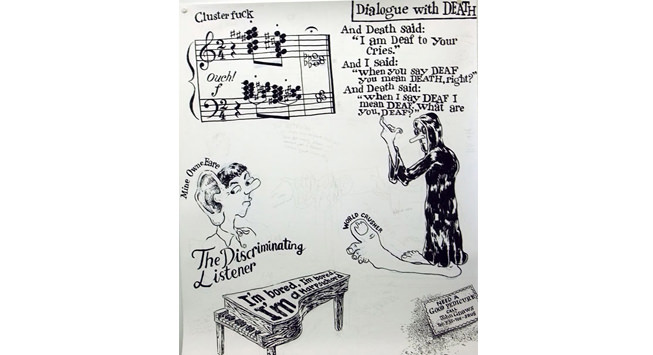 Cluster fuck
Ouch!
f
Dialogue with DEATH
And Death said:
"I am Deaf to your
Cries."
And I said:
"When you say DEAF
you mean DEATH, right?"
And Death said:
"When I say DEAF I
mean DEAF. What are
you, DEAF?"
Mine Owne Eare
The Discriminating
Listener
WORLD CRUSHER
I'm bored, I'm bored,
I'm a Harpsichord
NEED A
GOOD PEDICURE?
CALL